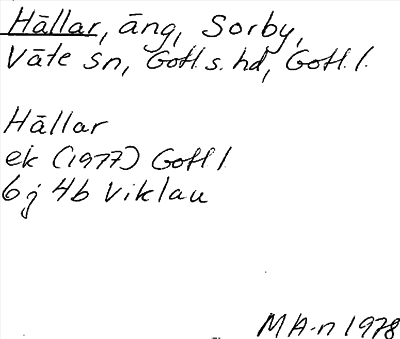 Hällar, äng, Sorby,
Väte sn, Gotl. s. hd, Gotl. l.
Hällar
ek (1977) Gotl l
6j 4b Viklau
MA-n 1978